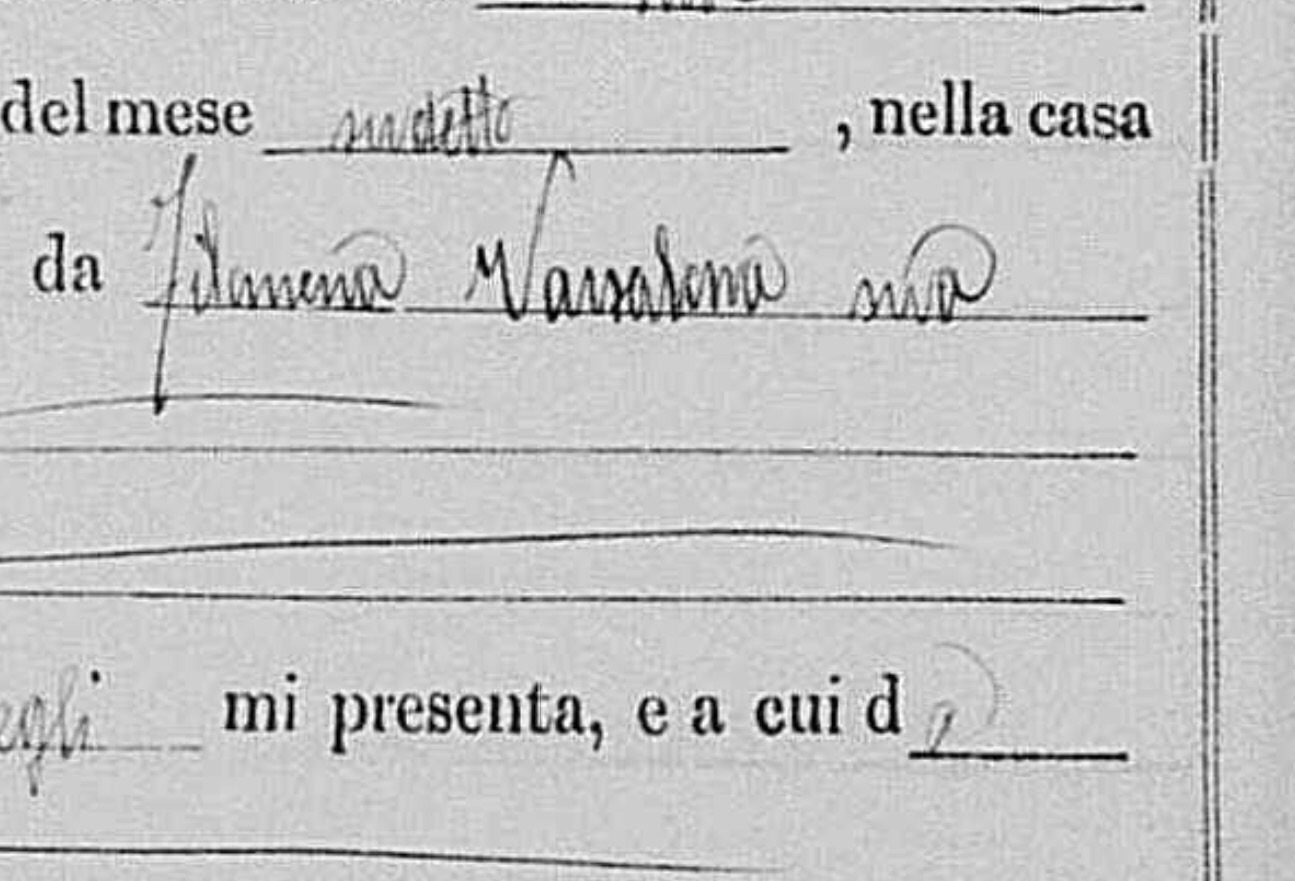 del mese sudetto , nella casa
da Filomena Vassalona sua
egli mi presenta, e a cui d à